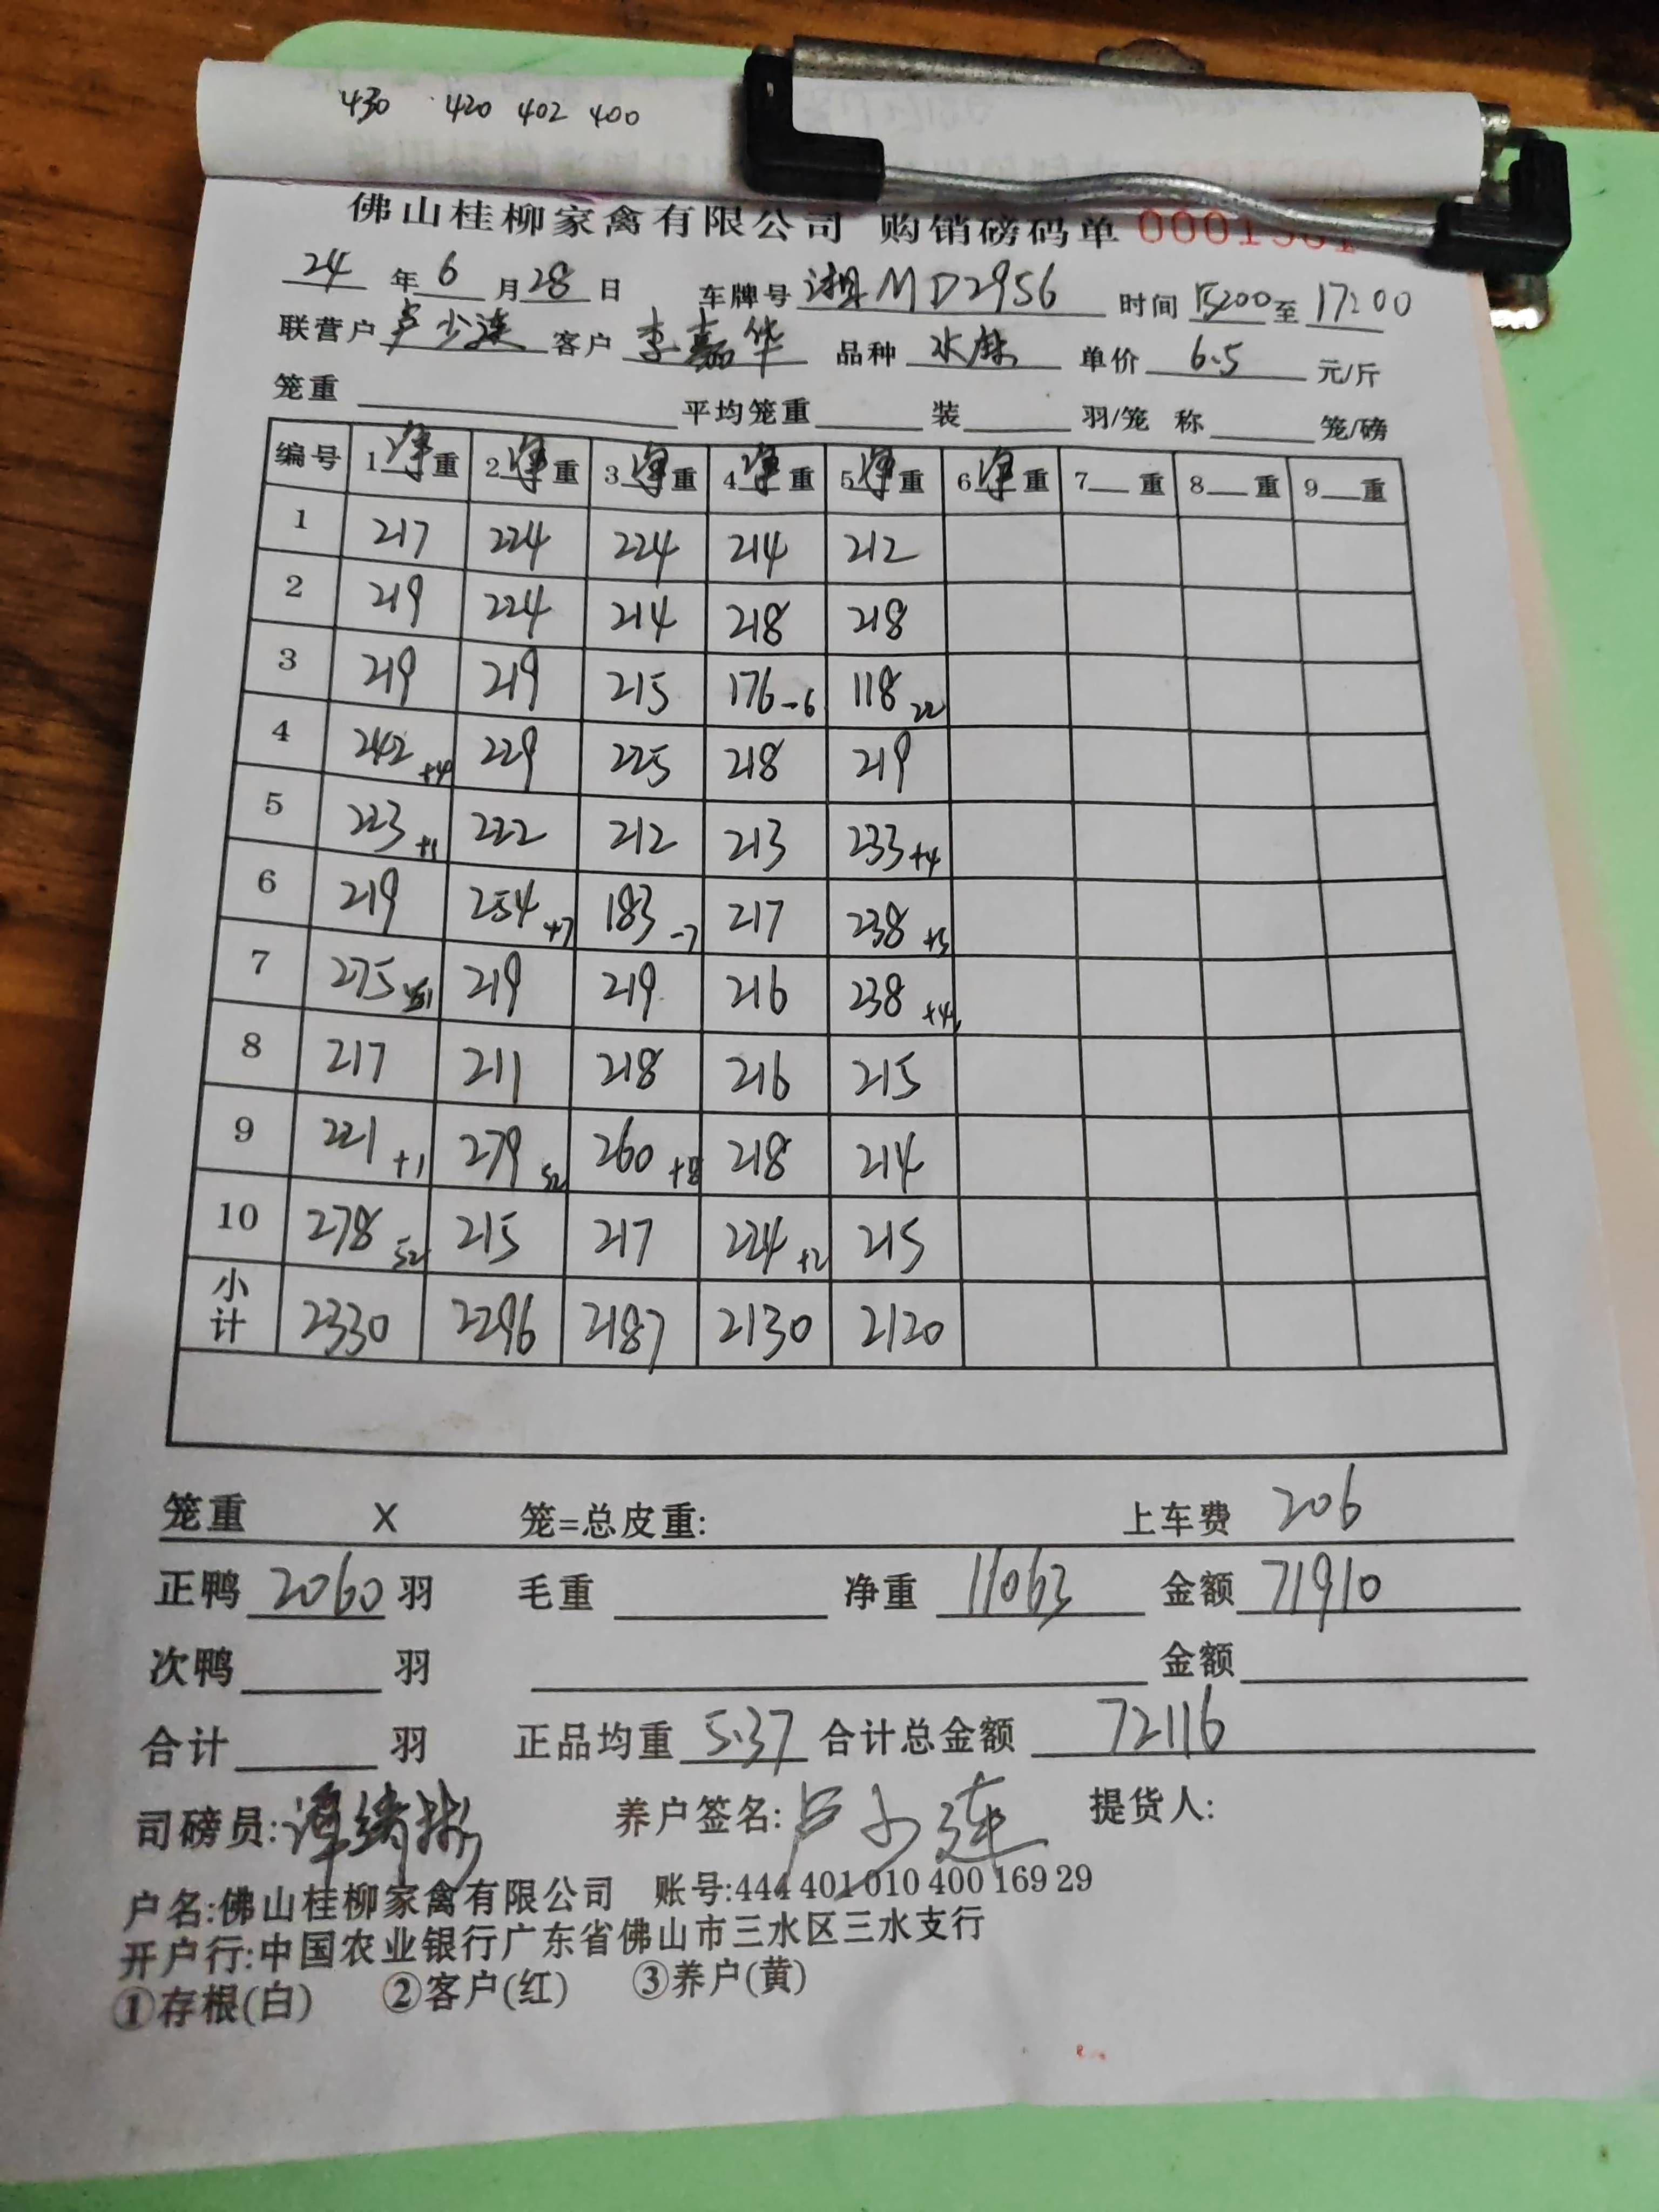 430 420 402 400
佛山桂柳家禽有限公司 购销磅码单
24 年 6 月 28 日 车牌号 湘MD2956 时间 15:00 至 17:00
联营户 卢少连 客户 李嘉华 品种 水麻 单价 6.5 元/斤
笼重 平均笼重 装 羽/笼 称 笼/磅
编号 1净重 2净重 3净重 4净重 5净重 6净重 7 重 8 重 9 重
1 217 224 224 214 212
2 219 224 214 218 218
3 219 219 215 176 -6 118 22
4 242 229 225 218 219
5 223 +1 222 212 213 233 +4
6 219 254 +7 183 -7 217 238 +5
7 275 219 219 216 238 +4
8 217 211 218 216 215
9 221 +1 279 52 260 +8 218 214
10 278 52 215 217 224 +2 215
小计 2330 2296 2187 2130 2120
笼重 X 笼=总皮重: 上车费 206
正鸭 2060 羽 毛重 净重 11063 金额 71910
次鸭 羽 金额
合计 羽 正品均重 5.37 合计总金额 72116
司磅员: 养户签名: 卢少连 提货人:
户名:佛山桂柳家禽有限公司 账号:444 401 010 400 169 29
开户行:中国农业银行广东省佛山市三水区三水支行
①存根(白) ②客户(红) ③养户(黄)